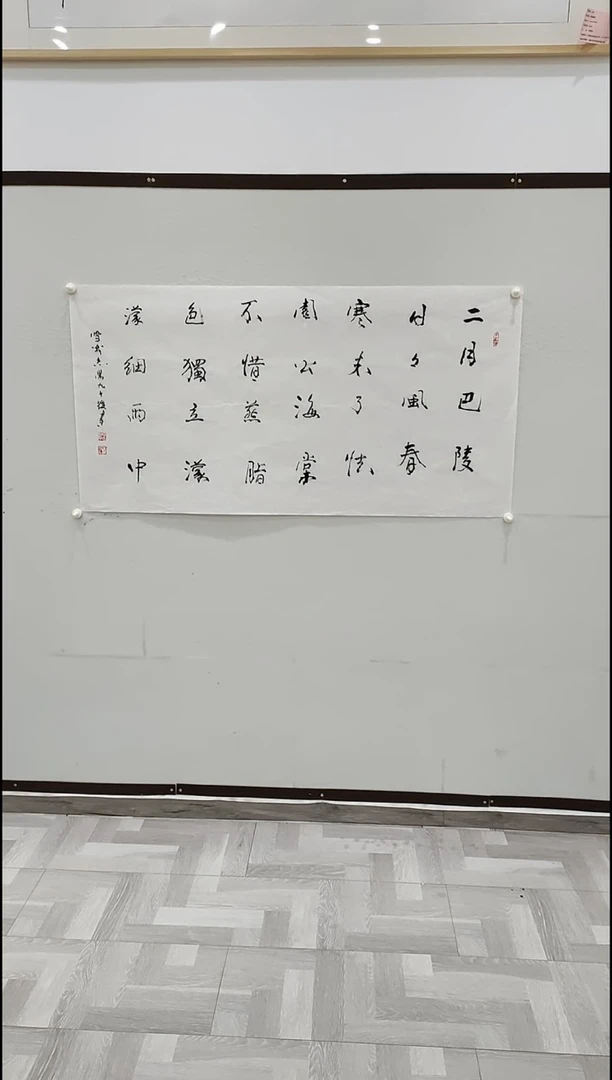 二月巴陵
日々風春
寒未了怯
園公海棠
不惜燕脂
色獨立濛
濛細雨中